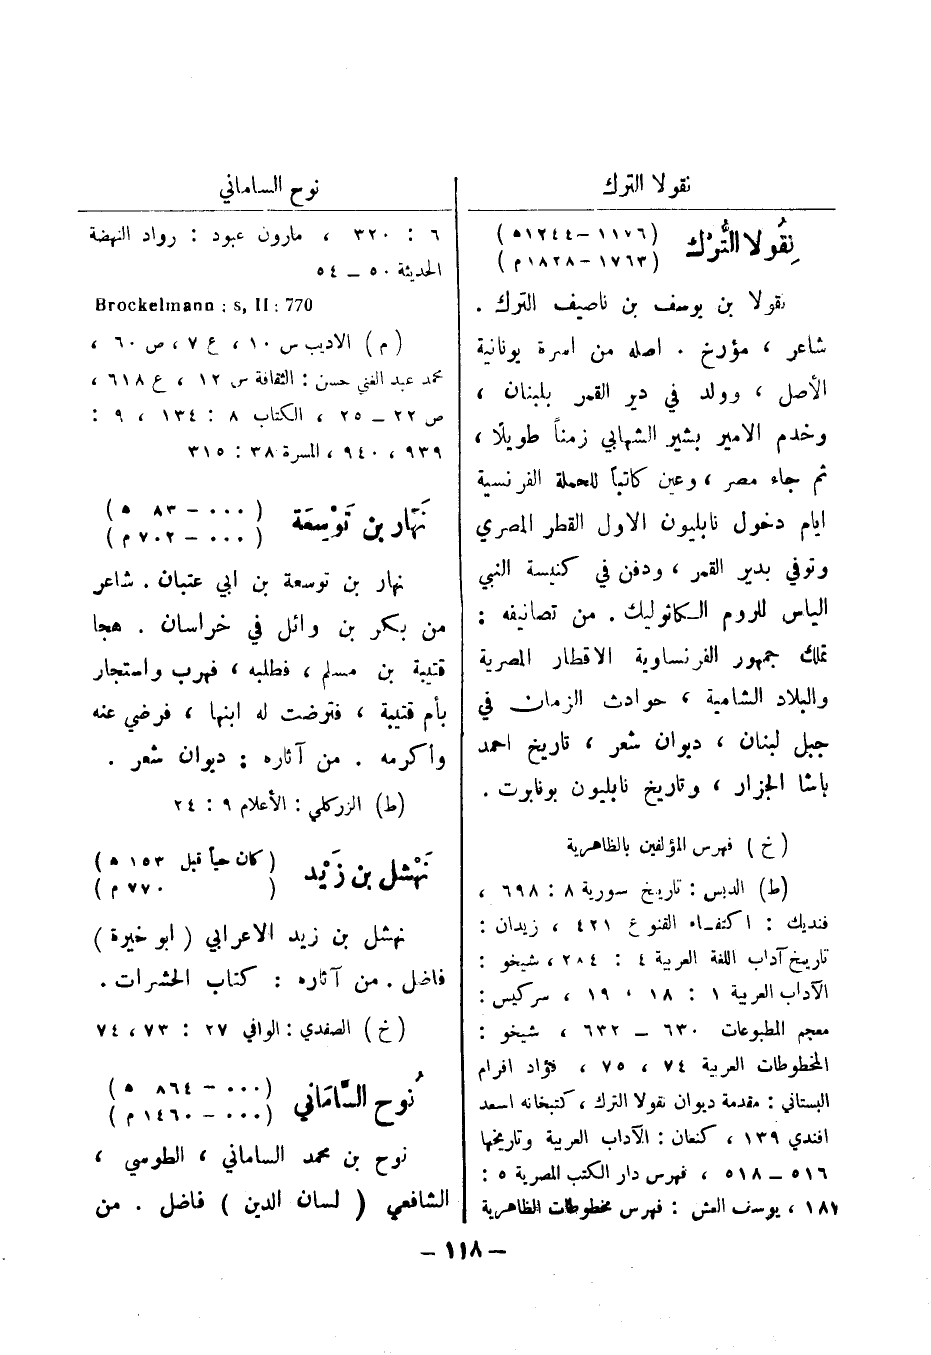 نقولا الترك
نِقُولا التُّرْك (١١٧٦ – ١٢٤٤ ه)
(١٧٦٣ – ١٨٢٨ م)
نقولا بن يوسف بن ناصيف الترك .
شاعر ، مؤرخ . اصله من اسرة يونانية
الأصل ، وولد في دير القمر بلبنان ،
وخدم الامير بشير الشهابي زمناً طويلًا ،
ثم جاء مصر ، وعين كاتباً للحملة الفرنسية
ايام دخول نابليون الاول القطر المصري
وتوفي بدير القمر ، ودفن في كنيسة النبي
الياس للروم الكاثوليك . من تصانيفه :
تملك جمهور الفرنساوية الاقطار المصرية
والبلاد الشامية ، حوادث الزمان في
جبل لبنان ، ديوان شعر ، تاريخ احمد
باشا الجزار ، وتاريخ نابليون بونابرت .
( خ ) فهرس المؤلفين بالظاهرية
(ط) الدبس : تاريخ سورية ٨ : ٦٩٨ ،
فنديك : اكتفاء القنوع ٤٢١ ، زيدان :
تاريخ آداب اللغة العربية ٤ : ٢٨٤ ، شيخو :
الآداب العربية ١ : ١٨ ، ١٩ ، سركيس :
معجم المطبوعات ٦٣٠ – ٦٣٢ ، شيخو :
المخطوطات العربية ٧٤ ، ٧٥ ، فؤاد افرام
البستاني : مقدمة ديوان نقولا الترك ، كتبخانه اسعد
افندي ١٣٩ ، كنعان : الآداب العربية وتاريخها
٥١٦ – ٥١٨ ، فهرس دار الكتب المصرية ٥ :
١٨١ ، يوسف العش : فهرس مخطوطات الظاهرية
نوح الساماني
٦ : ٣٢٠ ، مارون عبود : رواد النهضة
الحديثة ٥٠ – ٥٤
Brockelmann : s, II : 770
( م ) الاديب س ١٠ ، ع ٧ ، ص ٦٠ ،
محمد عبد الغني حسن : الثقافة س ١٢ ، ع ٦١٨ ،
ص ٢٢ – ٢٥ ، الكتاب ٨ : ١٣٤ ، ٩ :
٩٣٩ ، ٩٤٠ ، المسرة ٣٨ : ٣١٥
نَهَار بن تَوْسِعَة (٠٠٠ – ٨٣ ه )
(٠٠٠ – ٧٠٢ م )
نهار بن توسعة بن ابي عتبان . شاعر
من بكر بن وائل في خراسان . هجا
قتيبة بن مسلم ، فطلبه ، فهرب واستجار
بأم قتيبة ، فترضت له ابنها ، فرضي عنه
وأكرمه . من آثاره : ديوان شعر .
(ط) الزركلي : الأعلام ٩ : ٢٤
نَهْشل بن زَيْد (كان حياً قبل ١٥٣ ه )
( ٧٧٠ م )
نهشل بن زيد الاعرابي ( ابو خيرة )
فاضل . من آثاره : كتاب الحشرات .
( خ ) الصفدي : الوافي ٢٧ : ٧٣ ، ٧٤
نُوح السَّامَاني (٠٠٠ – ٨٦٤ ه )
(٠٠٠ – ١٤٦٠ م )
نوح بن محمد الساماني ، الطوسي ،
الشافعي ( لسان الدين ) فاضل . من
– ١١٨ –